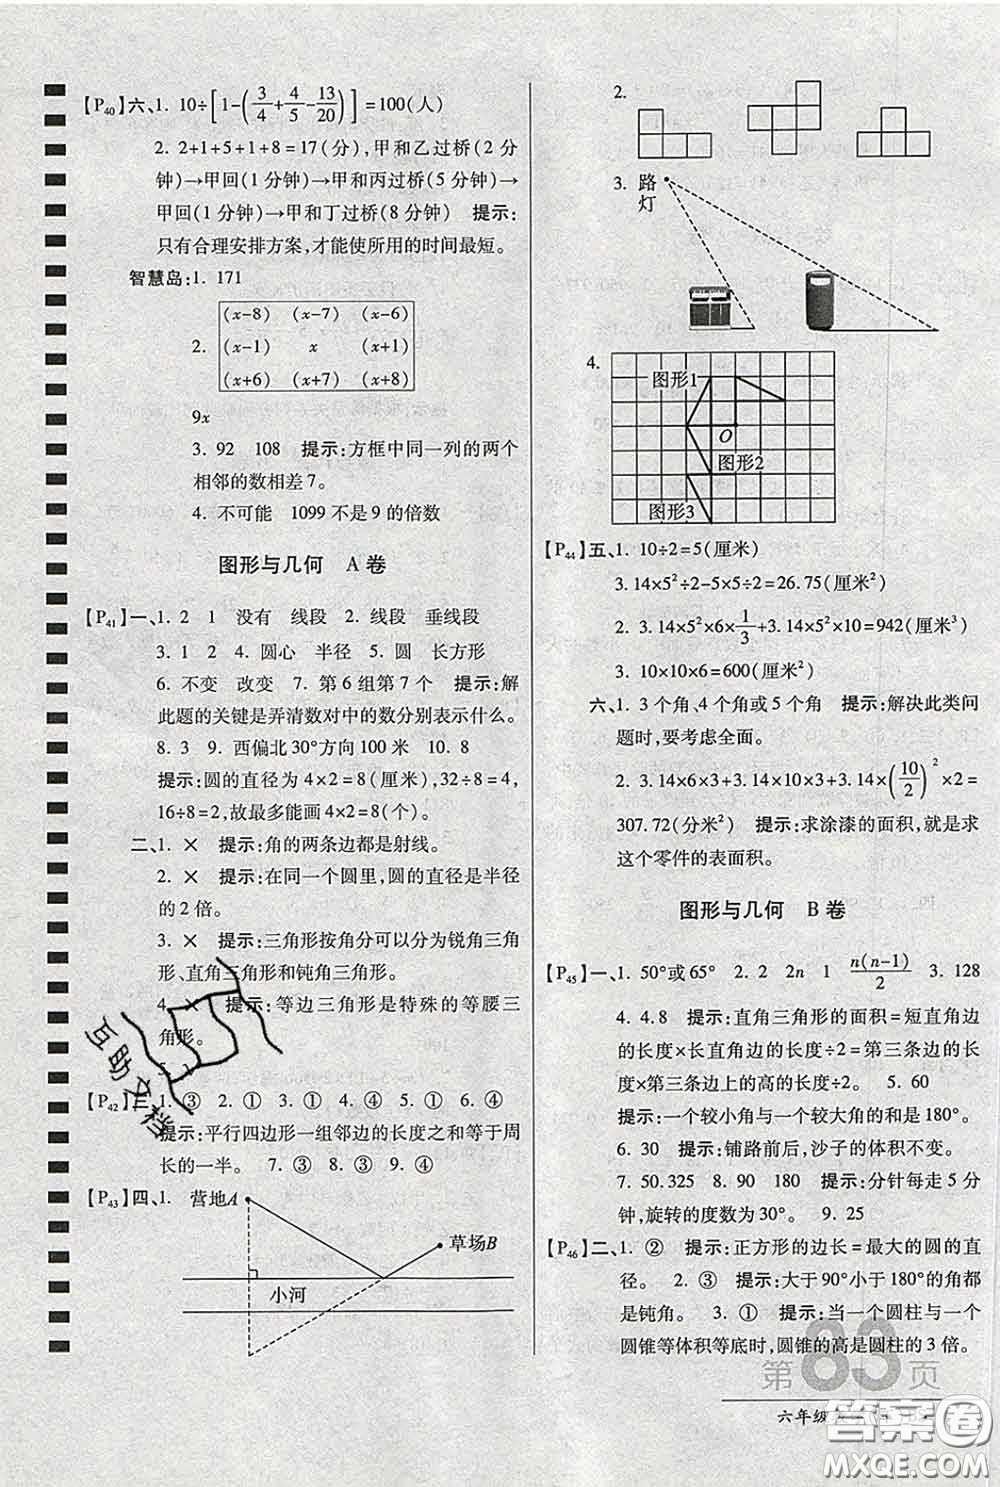 【P40】六、1. 10÷[1-(3/4+4/5-13/20)]=100(人)
2. 2+1+5+1+8=17(分),甲和乙过桥(2分
钟)→甲回(1分钟)→甲和丙过桥(5分钟)→
甲回(1分钟)→甲和丁过桥(8分钟) 提示:
只有合理安排方案,才能使所用的时间最短。
智慧岛:1. 171
2.
(x-8) (x-7) (x-6)
(x-1) x (x+1)
(x+6) (x+7) (x+8)
9x
3. 92 108 提示:方框中同一列的两个
相邻的数相差7。
4. 不可能 1099不是9的倍数
图形与几何 A卷
【P41】一、1. 2 1 没有 线段 2. 线段 垂线段
3. 1 2 4. 圆心 半径 5. 圆 长方形
6. 不变 改变 7. 第6组第7个 提示:解
此题的关键是弄清数对中的数分别表示什么。
8. 3 9. 西偏北30°方向100米 10. 8
提示:圆的直径为4×2=8(厘米),32÷8=4,
16÷8=2,故最多能画4×2=8(个)。
二、1. × 提示:角的两条边都是射线。
2. × 提示:在同一个圆里,圆的直径是半径
的2倍。
3. × 提示:三角形按角分可以分为锐角三角
形、直角三角形和钝角三角形。
4. × 提示:等边三角形是特殊的等腰三
角形。
【P42】三、1. ③ 2. ① 3. ① 4. ④ 5. ① 6. ④
提示:平行四边形一组邻边的长度之和等于周
长的一半。 7. ③ 8. ③ 9. ④
【P43】四、1. 营地A
草场B
小河
2.
3. 路
灯
4.
图形1
O
图形2
图形3
【P44】五、1. 10÷2=5(厘米)
3.14×5²÷2-5×5÷2=26.75(厘米²)
2. 3.14×5²×6×1/3+3.14×5²×10=942(厘米³)
3. 10×10×6=600(厘米²)
六、1. 3个角、4个角或5个角 提示:解决此类问
题时,要考虑全面。
2. 3.14×6×3+3.14×10×3+3.14×(10/2)²×2=
307.72(分米²) 提示:求涂漆的面积,就是求
这个零件的表面积。
图形与几何 B卷
【P45】一、1. 50°或65° 2. 2 2n 1 n(n-1)/2 3. 128
4. 4.8 提示:直角三角形的面积=短直角边
的长度×长直角边的长度÷2=第三条边的长
度×第三条边上的高的长度÷2 5. 60
提示:一个较小角与一个较大角的和是180°。
6. 30 提示:铺路前后,沙子的体积不变。
7. 50.325 8. 90 180 提示:分针每走5分
钟,旋转的度数为30°。 9. 25
【P46】二、1. ② 提示:正方形的边长=最大的圆的直
径。 2. ③ 提示:大于90°小于180°的角都
是钝角。 3. ① 提示:当一个圆柱与一个
圆锥等体积等底时,圆锥的高是圆柱的3倍。
第83页
六年级
答案卷
MXQE.COM
互助文档